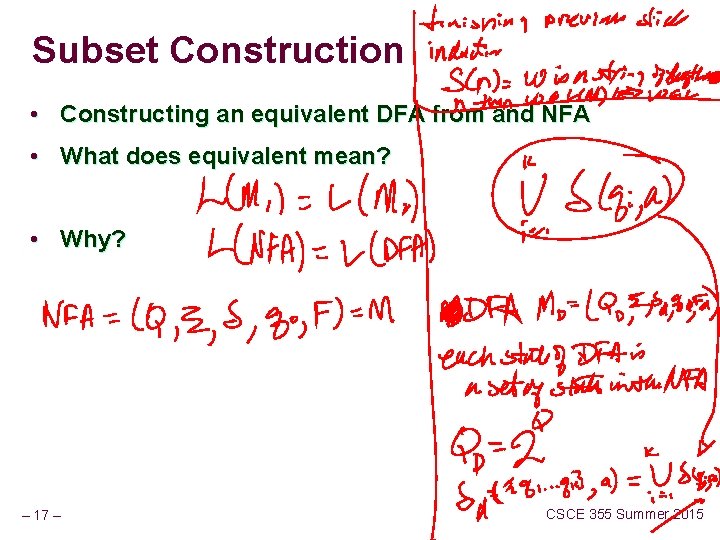 Subset Construction
finishing previous slide
induction
S(n) = w is a string of length
n then
• Constructing an equivalent DFA from and NFA
• What does equivalent mean?
L(M₁) = L(M₂)
• Why?
L(NFA) = L(DFA)
k
∪ δ(qᵢ, a)
i=1
NFA = (Q, Σ, δ, q₀, F) = M
DFA M_D = (Q_D, Σ, δ_d, q₀, F_d)
each state of DFA is
a set of states in the NFA
Q_D = 2^Q
δ_d({q₁...qₖ}, a) = ∪ δ(qᵢ, a)
k
i=1
– 17 –
CSCE 355 Summer 2015